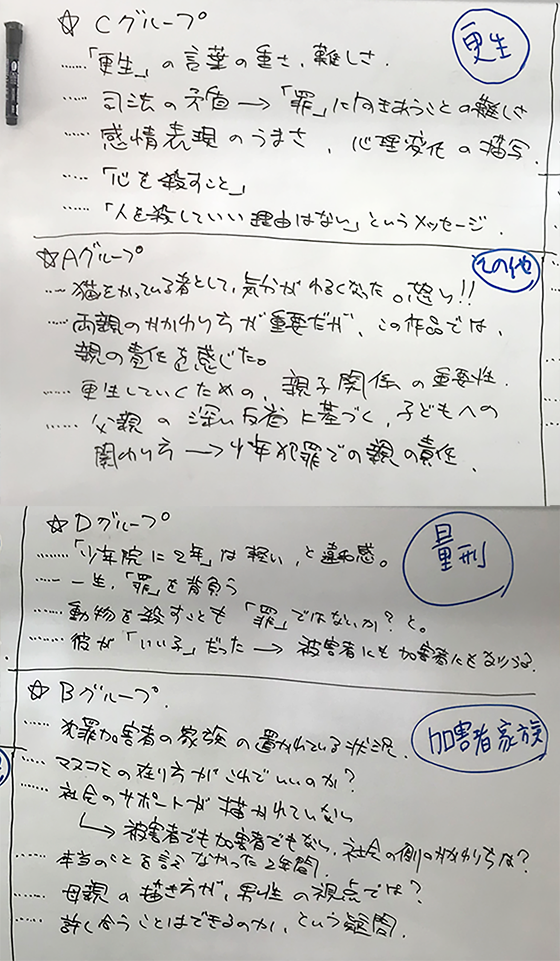 ☆ Cグループ
更生
……「更生」の言葉の重さ、難しさ.
…… 司法の矛盾→「罪」に向きあうことの難しさ
…… 感情表現のうまさ、心理変化の描写.
…… 「心を殺すこと」
…… 「人を殺していい理由はない」というメッセージ.
☆Aグループ
その他
…… 猫をかっている者として、気分がわるくなった。怒り!!
…… 両親のかかわり方が重要だが、この作品では、
親の責任を感じた。
…… 更生していくための、親子関係の重要性.
…… 父親の深い反省に基づく、子どもへの
関わり方→少年犯罪での親の責任.
☆Dグループ
量刑
……「少年院に2年」は軽い、と違和感。
…… 一生、「罪」を背負う
…… 動物を殺すことも「罪」ではないか?と。
…… 彼が「いい子」だった→被害者にも加害者にもなりうる.
☆Bグループ.
加害者家族
…… 犯罪加害者の家族の置かれている状況.
…… マスコミの在り方がこれでいいのか?
…… 社会のサポートが描かれていない
↳ 被害者でも加害者でもない、社会の側のかかわりは?
…… 本当のことを言えなかった2年間.
…… 母親の描き方が、男性の視点では?
…… 許し合うことはできるのか、という疑問.